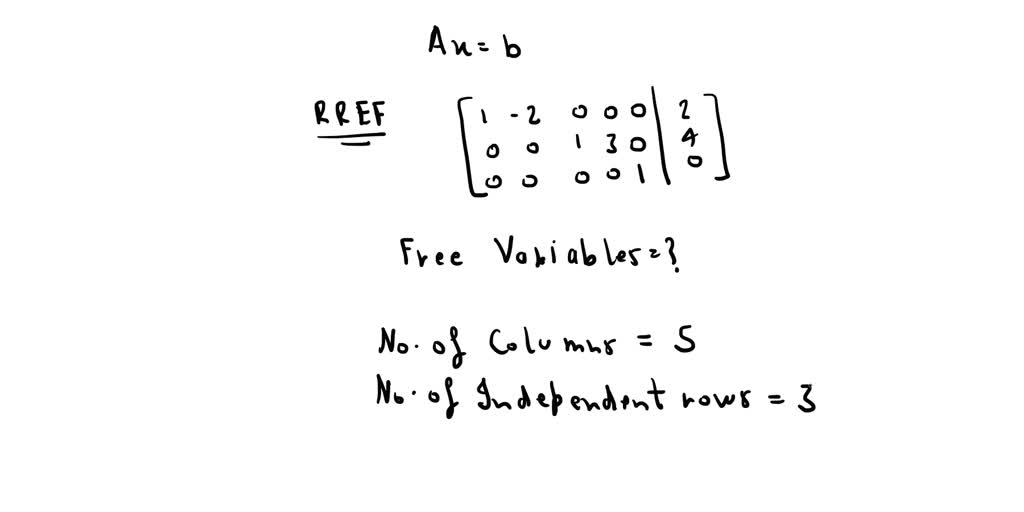 Ax = b
RREF
[ 1 -2 0 0 0 | 2 ]
[ 0 0 1 3 0 | 4 ]
[ 0 0 0 0 1 | 0 ]
Free Variables = ?
No. of Columns = 5
No. of Independent rows = 3